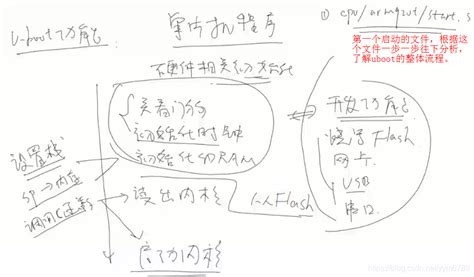 u-boot功能
单片机程序
① cpu/arm920t/start.s
第一个启动的文件,根据这
个文件一步一步往下分析,
了解uboot的整体流程。
硬件相关初始化
关看门狗
初始化时钟
初始化SDRAM
开发功能
烧写Flash
网卡
USB
串口
设置栈
sp→内存
调用C函数
读出内核
从Flash
启动内核